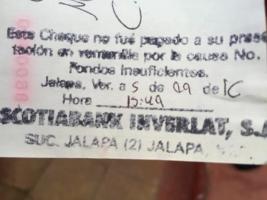 Este Cheque no fué pagado a su presen
tación en ventanilla por la causa No.
Fondos Insuficientes.
Jalapa, Ver. a 5 de 09 de
Hora 13:49
SCOTIABANK INVERLAT, S.A
SUC. JALAPA (2) JALAPA,